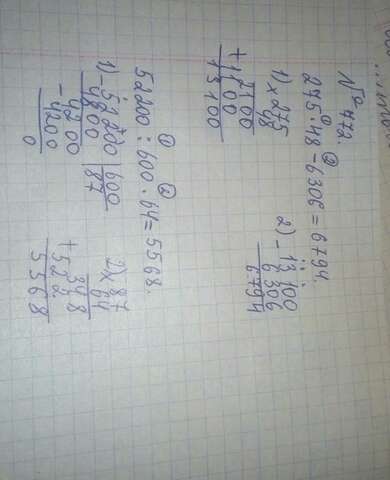 № 472.
① ②
275·48-6306=6794.
1) × 275
48
2100
+ 1100
13100
2) - 13 100
6 306
6794
① ②
52200:600·64=5568.
1) - 52200 | 600
4800 | 87
- 4200
4200
0
2) × 87
64
348
+ 522
5568